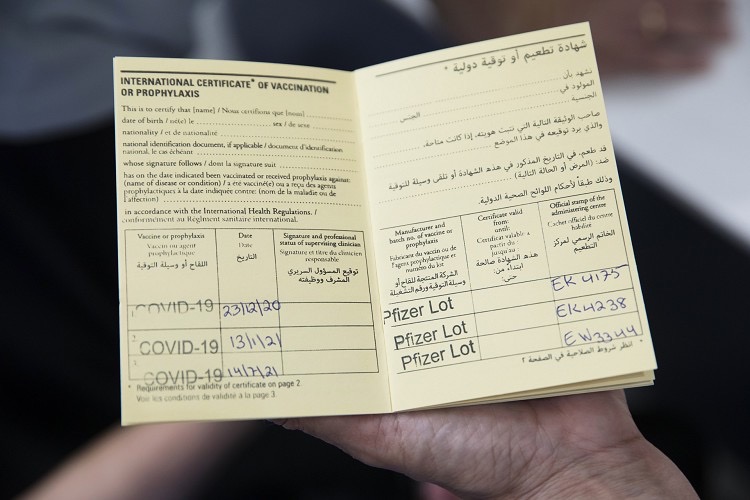 INTERNATIONAL CERTIFICATE* OF VACCINATION
OR PROPHYLAXIS
This is to certify that [name] / Nous certifions que [nom]
date of birth / né(e) le sex / de sexe
nationality / et de nationalité
national identification document, if applicable / document d'identification
national, le cas échéant
whose signature follows / dont la signature suit
has on the date indicated been vaccinated or received prophylaxis against:
(name of disease or condition) / a été vacciné(e) ou a reçu des agents
prophylactiques à la date indiquée contre: (nom de la maladie ou de
l'affection)
in accordance with the International Health Regulations. /
conformément au Règlement sanitaire international.
Vaccine or prophylaxis
Vaccin ou agent
prophylactique
اللقاح أو وسيلة التوقية
Date
Date
التاريخ
Signature and professional
status of supervising clinician
Signature et titre du clinicien
responsable
توقيع المسؤول السريري
المشرف ووظيفته
COVID-19 23/12/20
COVID-19 13/1/21
COVID-19 14/7/21
* Requirements for validity of certificate on page 2.
Voir les conditions de validité à la page 3.
شهادة تطعيم أو توقية دولية *
نشهد بأن
المولود في الجنس
الجنسية
صاحب الوثيقة التالية التي تثبت هويته، إذا كانت متاحة،
والذي يرد توقيعه في هذا الموضع
قد طعم، في التاريخ المذكور في هذه الشهادة أو تلقى وسيلة للتوقية
ضد: (المرض أو الحالة التالية)
وذلك طبقاً لأحكام اللوائح الصحية الدولية.
Manufacturer and
batch no. of vaccine or
prophylaxis
Fabricant du vaccin ou de
l'agent prophylactique et
numéro du lot
الشركة المنتجة للقاح أو
وسيلة التوقية ورقم التشغيلة
Certificate valid
from:
until:
Certificat valable à
partir du
jusqu'au
هذه الشهادة صالحة
ابتداء من:
حتى:
Official stamp of the
administering centre
Cachet officiel du centre
habilité
الخاتم الرسمي لمركز
التطعيم
Pfizer Lot EK 4175
Pfizer Lot EK4238
Pfizer Lot EW3344
* انظر شروط الصلاحية في الصفحة ٢